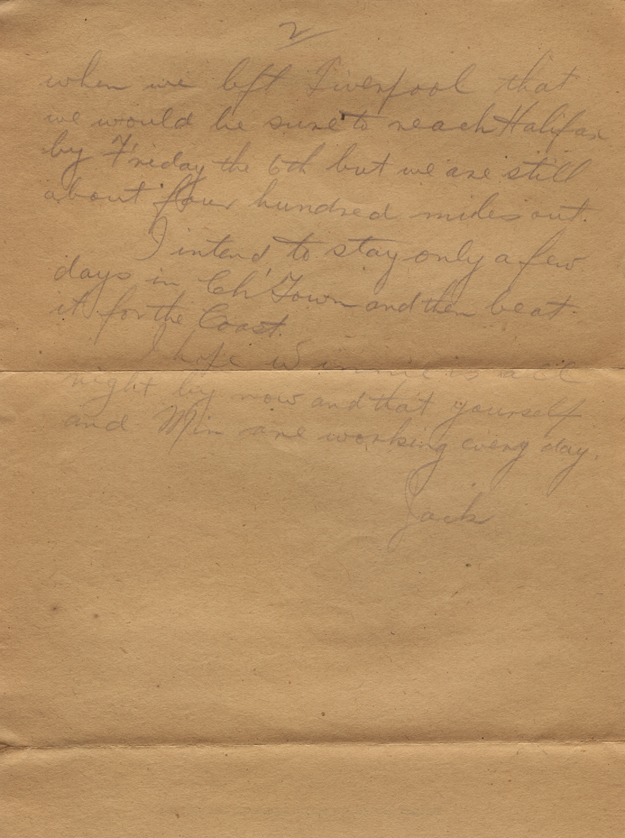 2
when we left Liverpool that
we would be sure to reach Halifax
by Friday the 6th but we are still
about four hundred miles out.
I intend to stay only a few
days in Ch'Town and then beat
it for the Coast.
I hope Winnie is all
right by now and that yourself
and Min are working every day.
Jack